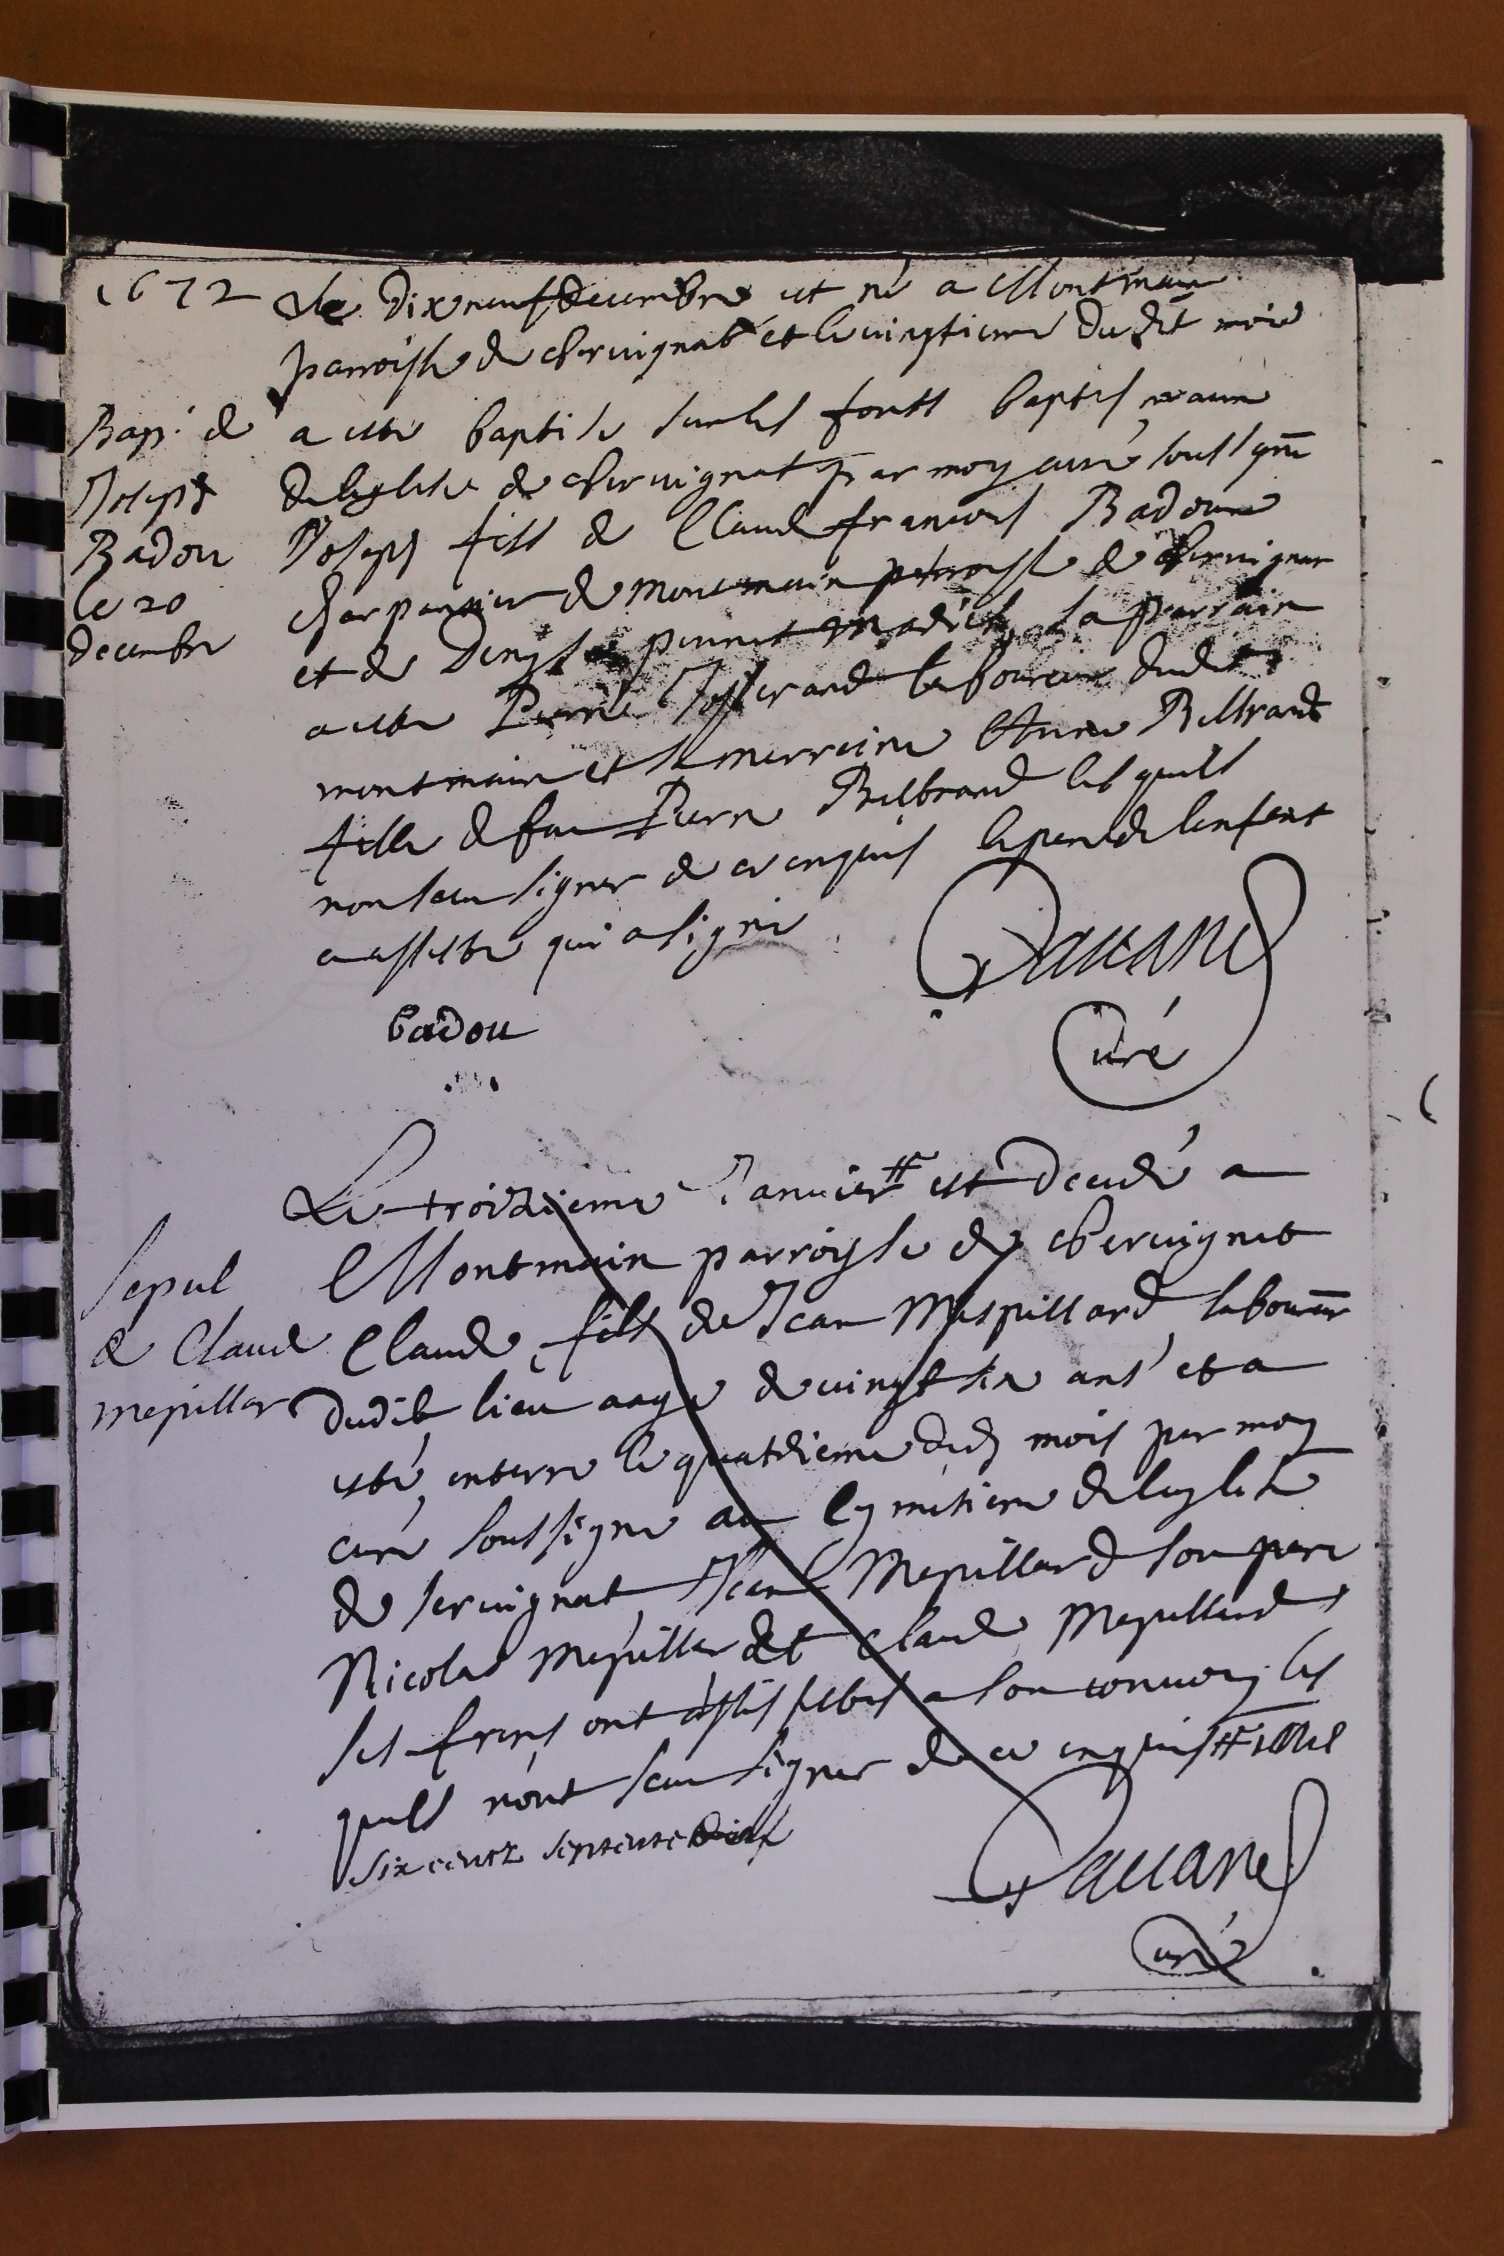 1672
Le dixneuf decembre est né a Montmain
parroisse de chervignat et le vingtieme dudit mois
Bap. de
Joseph
Badou
le 20
decembre
a esté baptisé sur les fonts baptismaux
de leglise de chervignat par moy curé soussigné
Joseph fils de Claude francois Badoux
charpantier de montmain parroisse de chervignat
et de Denyse pernet sa parrain
a esté Pierre Josserand laboureur dudit
montmain et sa marraine Anne Beltrand
fille de feu Pierre Beltrand lesquels
non sceu signer de ce enquis le pere de lenfant
a assisté qui a signé
Davane
curé
badou
Sepul
de Claude
mepillar
Le troizieme Janvier # est decedé a
Montmain parroisse de chervignat
Claude fils de Jean Mespillard laboureur
dudit lieu aagé de vingt six ans et a
esté enterré le quatrieme dud mois par moy
curé soussigné au Cymetiere de leglise
de servignat Jean Mepillard son pere
Nicolas mepillar et claude Mepillard
ses freres ont assisté a son convoy les
quels n'ont sceu signer de ce enquis # mil
six centz septente
Davane
curé